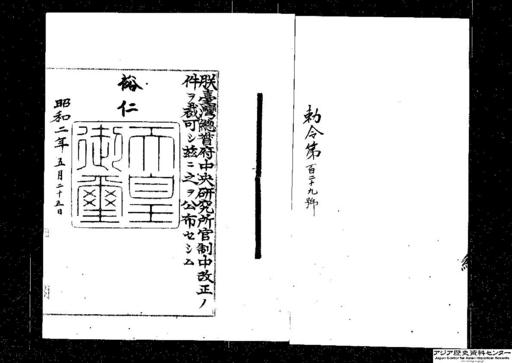 勅令第百二十九號
朕臺灣總督府中央研究所官制中改正ノ
件ヲ裁可シ茲ニ之ヲ公布セシム
裕仁
天皇
御璽
昭和二年五月二十五日
アジア歴史資料センター
Japan Center for Asian Historical Records